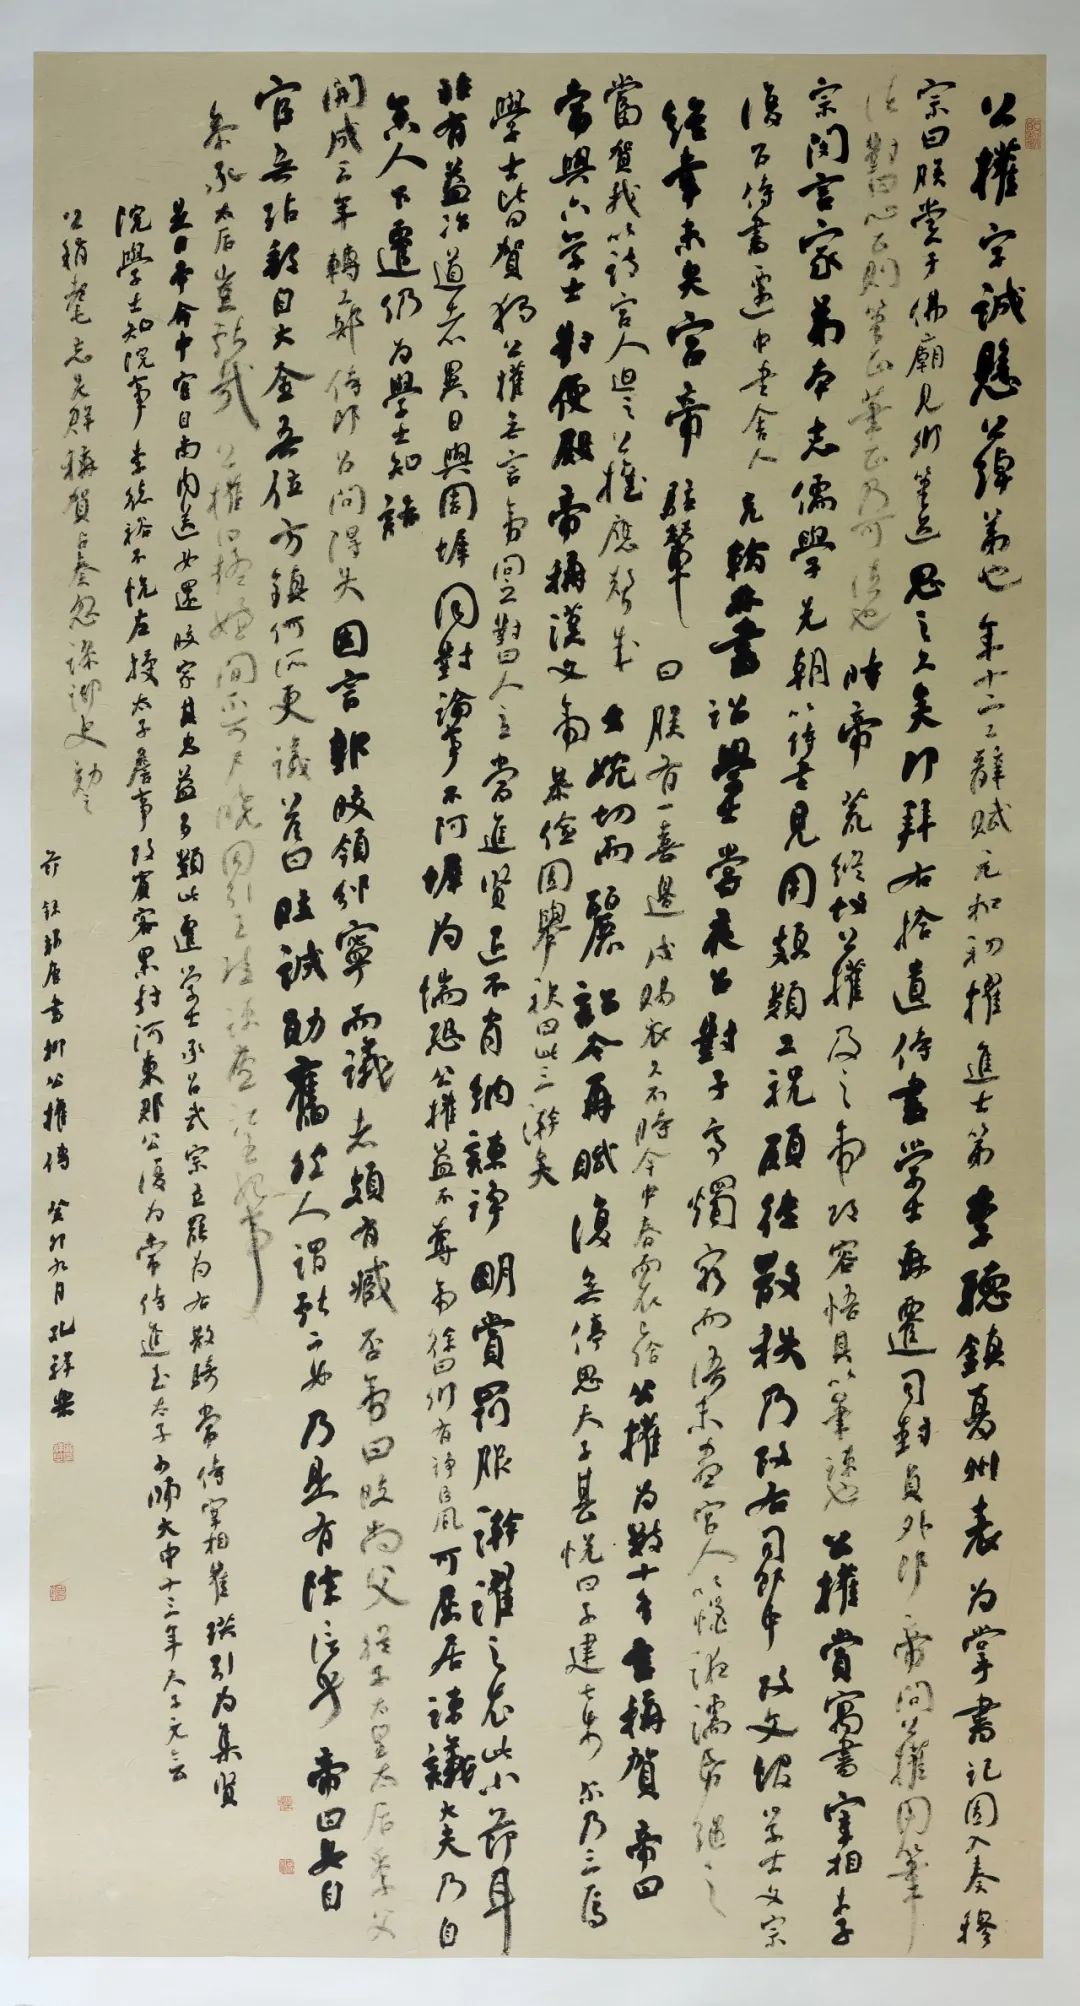 公權字誠懸公綽弟也年十二工辭賦元和初擢進士第李聽鎮夏州表為掌書記因入奏穆
宗曰朕嘗于佛廟見卿筆迹思之久矣即拜右拾遺侍書學士再遷司封員外郎帝問公權用筆
法對曰心正則筆正筆正乃可法也時帝荒縱故公權及之帝改容悟其以筆諫也公權嘗寓書宰相李
宗閔言家弟本志儒學先朝以侍書見用頗類工祝願徙散秩乃改右司郎中改文館學士文宗
復召侍書遷中書舍人充翰林書詔學士嘗夜召對子亭燭窮而語未盡宮人以蠟液濡紙繼之
從幸未央宮帝駐輦曰朕有一喜邊戍賜衣久不時今中春而衣已給公權為數十言稱賀帝曰
當賀我以詩宮人迫之公權應聲成文婉切而麗詔令再賦復無停思天子甚悅曰子建七步爾乃三焉
常與六學士對便殿帝稱漢文帝恭儉因舉袂曰此三澣矣
學士皆賀獨公權無言帝問之對曰人主當進賢退不肖納諫諍明賞罰服澣濯之衣此小節耳
非有益治道者異日與周墀同對論事不阿墀為惴恐公權益不奪帝徐曰卿有諍臣風可屈居諫議大夫乃自
舍人下遷仍為學士知誥
開成三年轉工部侍郎召問得失因言郭旼領邠寧而議者頗有臧否帝曰旼尚父從子太皇太后季父
官無玷郵自大金吾位方鎮何所更議答曰旼誠勛舊然人謂獻二女乃是有除信乎帝曰女自
參承太后豈獻哉公權曰疑嫌間不可戶曉因引王珪諫廬江王妃事
是日帝命中官自南內送女還旼家其忠益多類此遷學士承旨武宗立罷為右散騎常侍宰相崔珙引為集賢
院學士知院事李德裕不悅左授太子詹事改賓客累封河東郡公復為常侍進至太子少師大中十三年天子元會
公稍耄忘先群臣稱賀占奏忽謬御史劾之
節錄新唐書柳公權傳癸卯九月孔祥樂